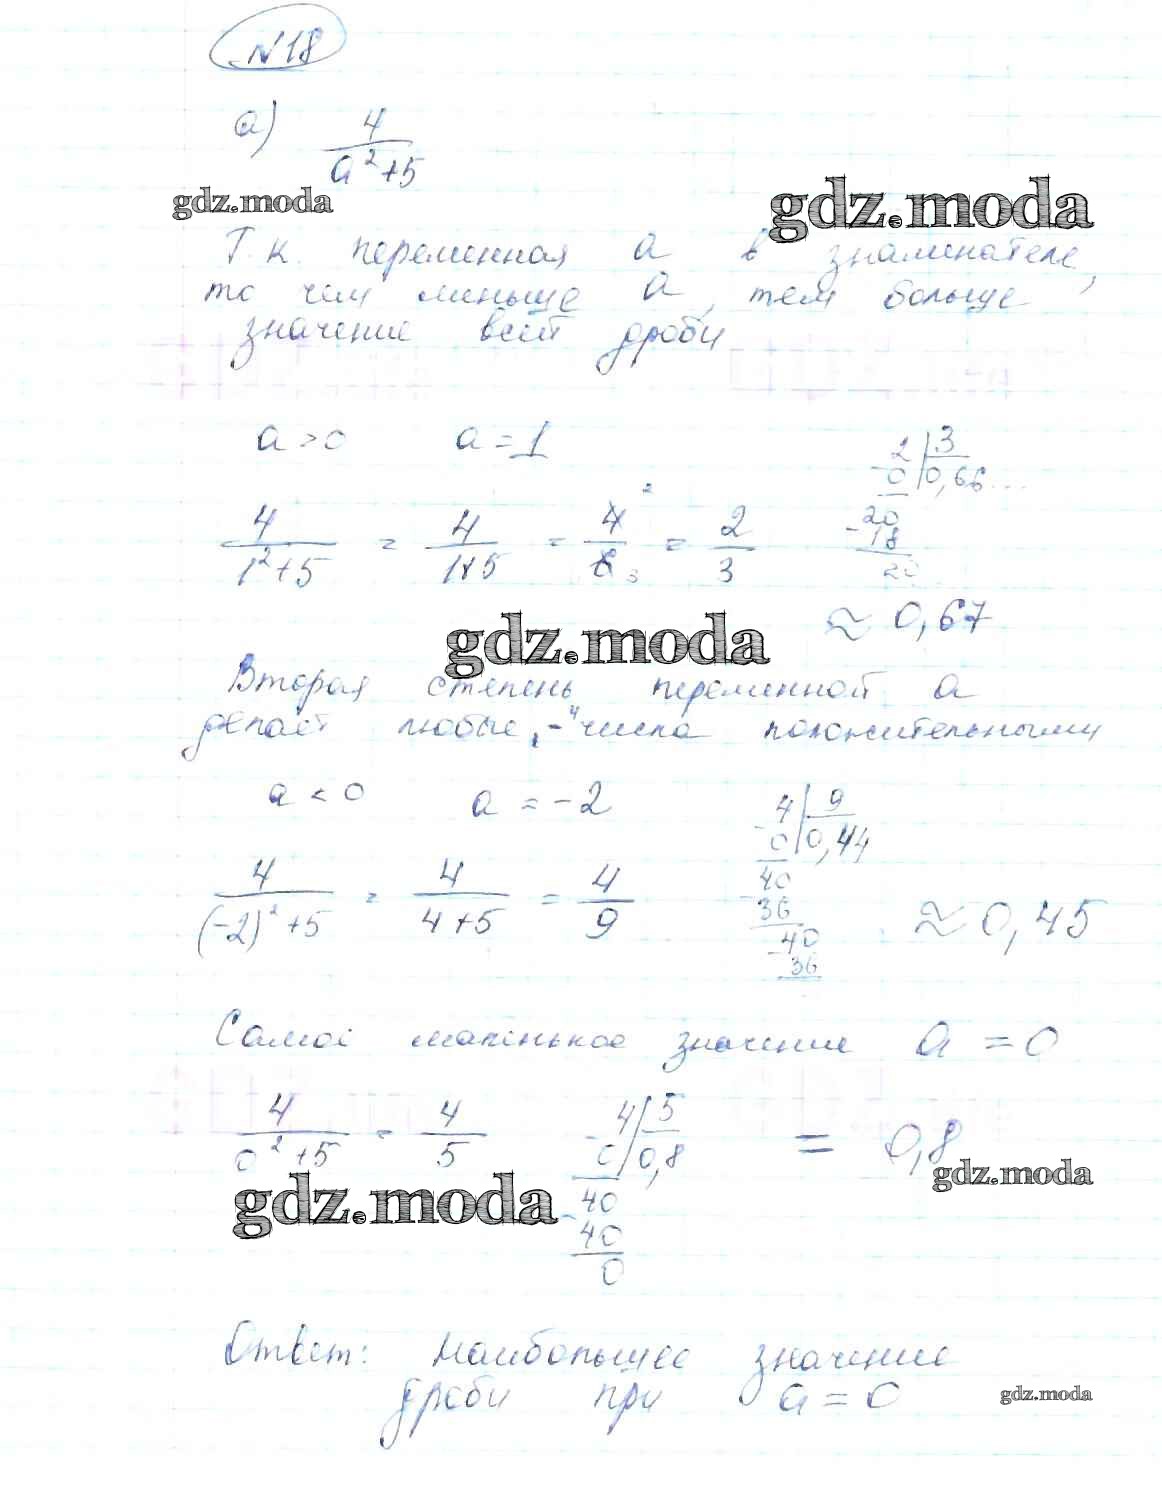 №18
а) 4/(a²+5)
gdz.moda
gdz.moda
Т.к. переменная a в знаминателе,
то чем меньше a, тем больше
значение всей дроби
a > 0 a = 1
2 | 3
0 | 0,66...
20
-18
20
4/(1²+5) = 4/(1+5) = 4/6 = 2/3
≈ 0,67
gdz.moda
Вторая степень переменной a
делает любые "-" числа положительными
a < 0 a = -2
4 | 9
0 | 0,44
40
36
40
36
4/((-2)²+5) = 4/(4+5) = 4/9
≈ 0,45
Самое маленькое значение a = 0
4/(0²+5) = 4/5
4 | 5
0 | 0,8
40
40
0
= 0,8
gdz.moda
gdz.moda
Ответ: Наибольшее значение
дроби при a = 0
gdz.moda